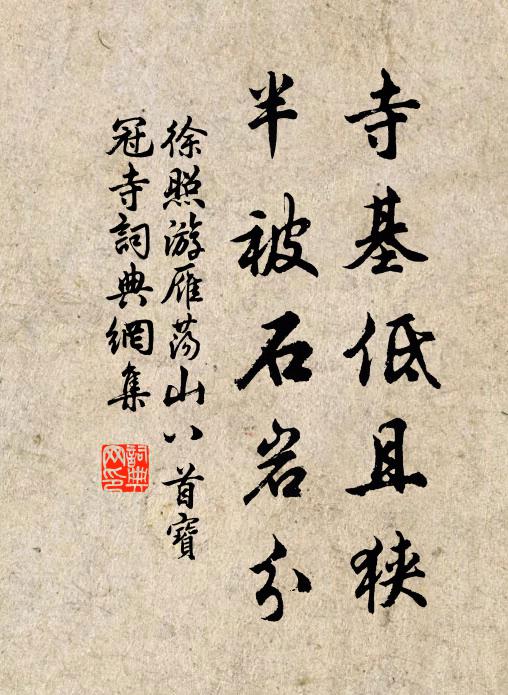 寺基低且狹
半被石岩分
徐照游雁蕩山八首寶
冠寺詞典網集
詞典
网印